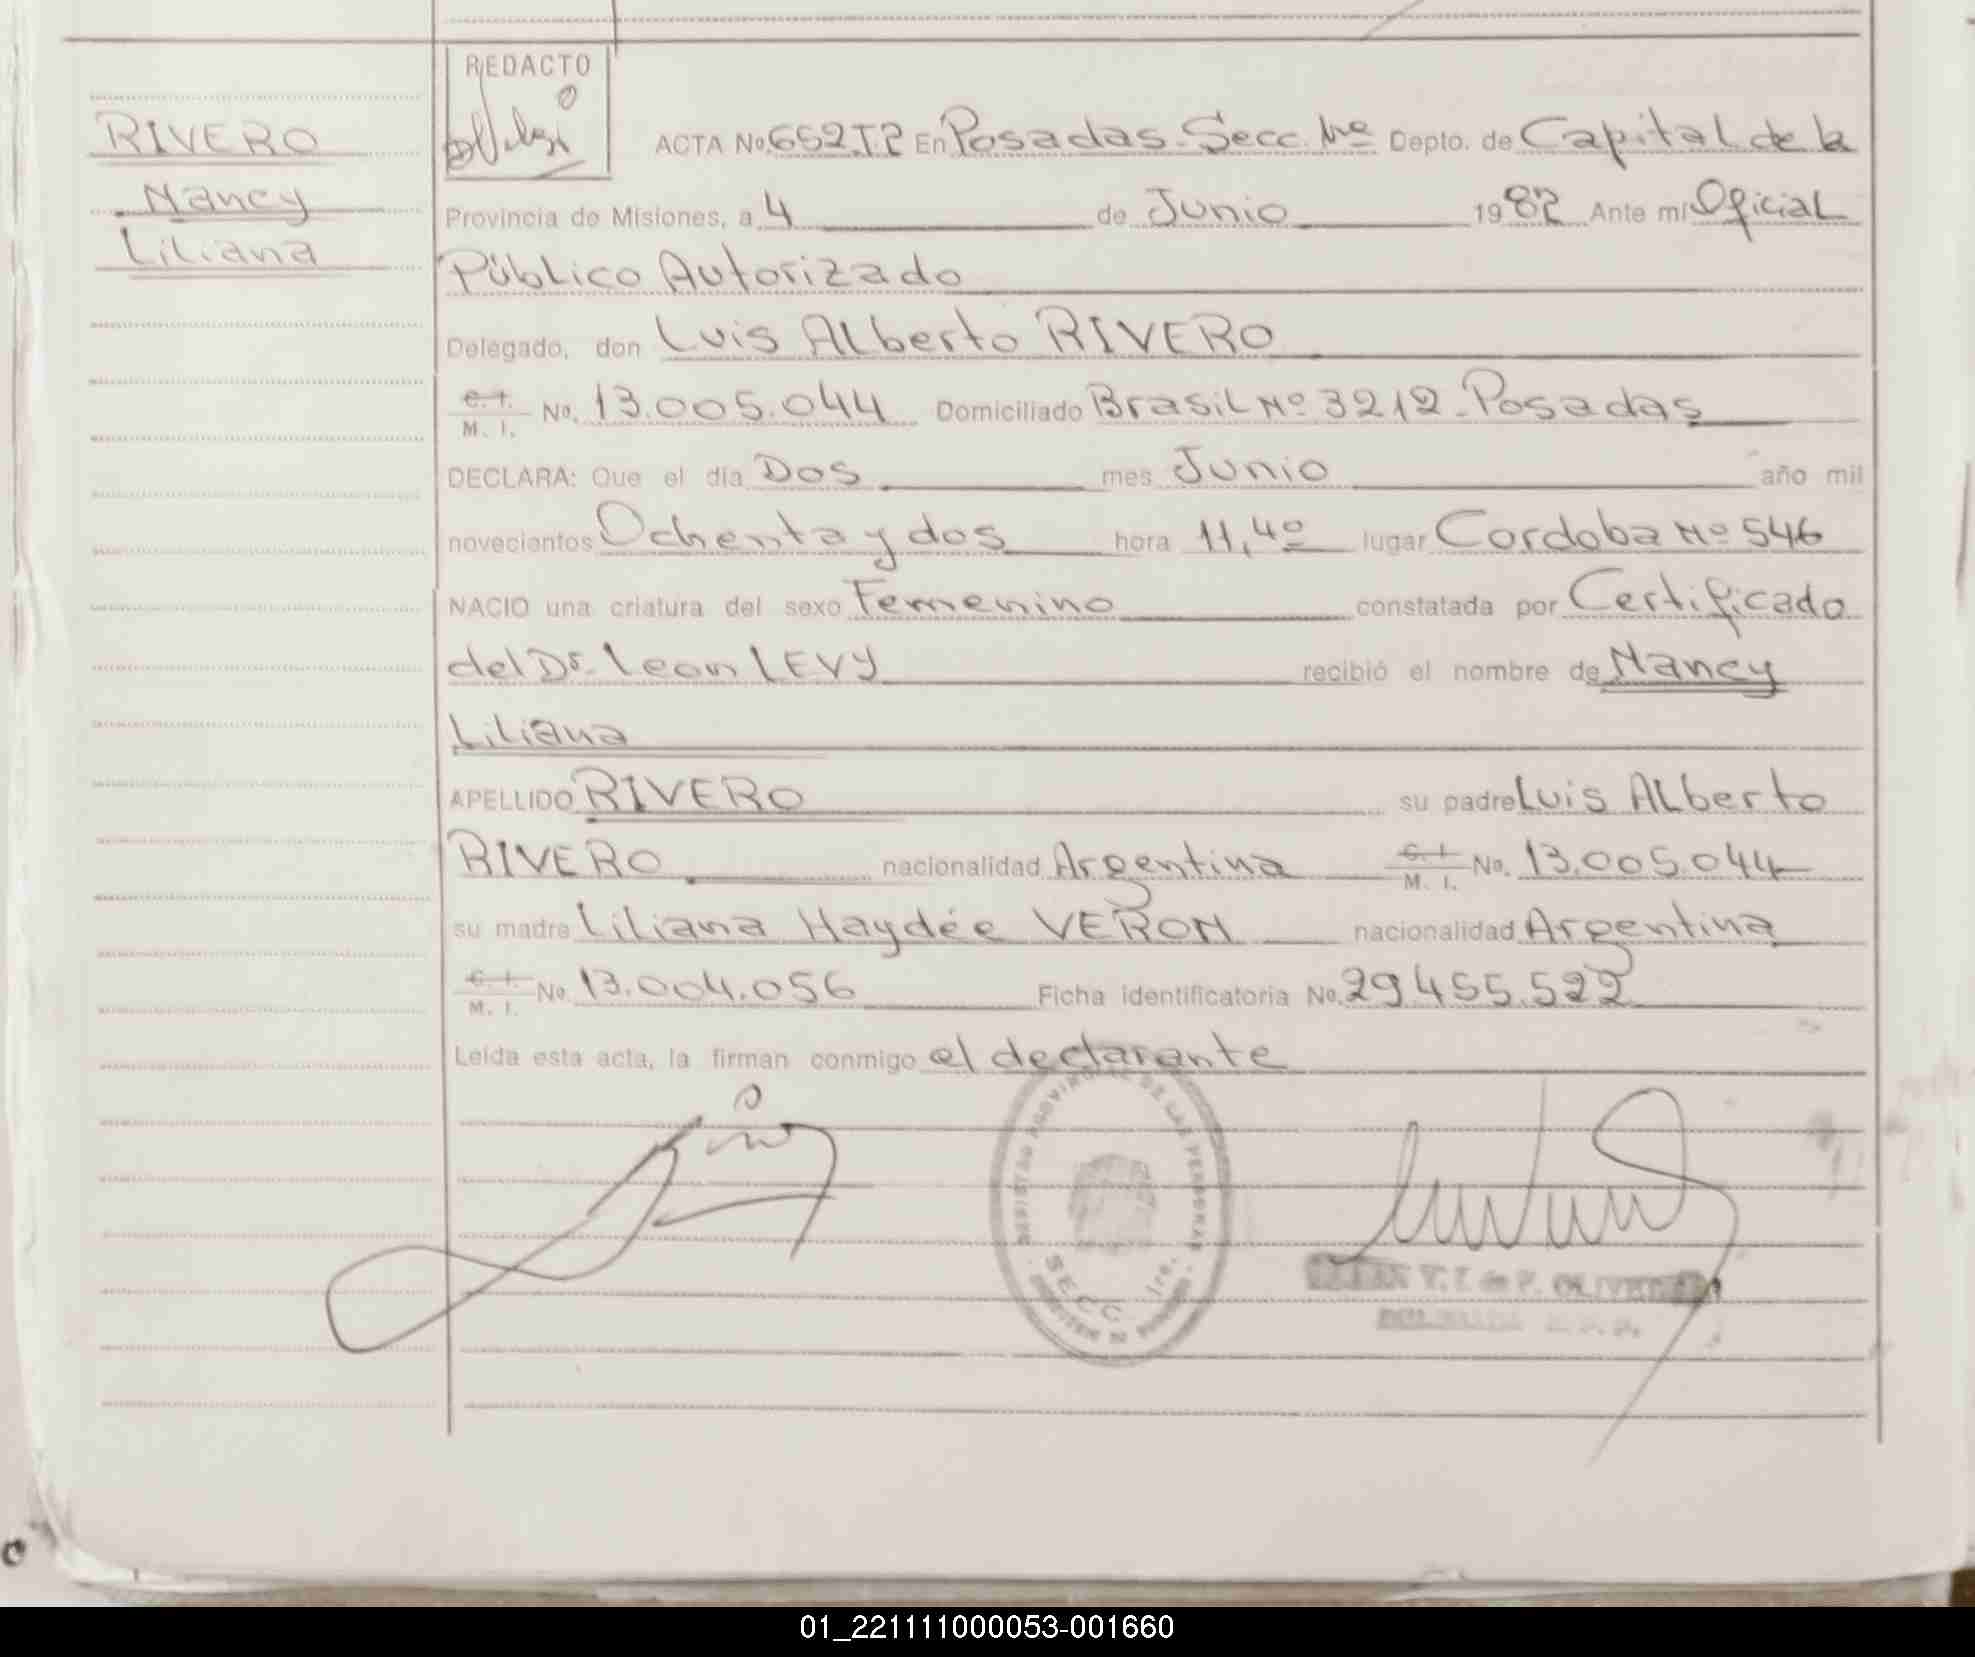 REDACTO
RIVERO
Nancy
Liliana
ACTA No. 652.T2 En Posadas-Secc. 1ra Depto. de Capital de la
Provincia de Misiones, a 4 de Junio 1982 Ante mí Oficial
Público Autorizado
Delegado, don Luis Alberto RIVERO
C. I. M. I. No. 13.005.044 Domiciliado Brasil Nº 3212-Posadas
DECLARA: Que el día Dos mes Junio año mil
novecientos Ochenta y dos hora 11,40 lugar Cordoba Nº 546
NACIO una criatura del sexo Femenino constatada por Certificado
del Dr. Leon LEVY recibió el nombre de Nancy
Liliana
APELLIDO RIVERO su padre Luis Alberto
RIVERO nacionalidad Argentina C. I. M. I. No. 13.005.044
su madre Liliana Haydée VERON nacionalidad Argentina
C. I. M. I. No. 13.004.056 Ficha identificatoria No. 29.455.522
Leída esta acta, la firman conmigo el declarante
REGISTRO PROVINCIAL DE LAS PERSONAS
SECC. 1ra.
V. T. de P. OLIVEIRA
01_221111000053-001660